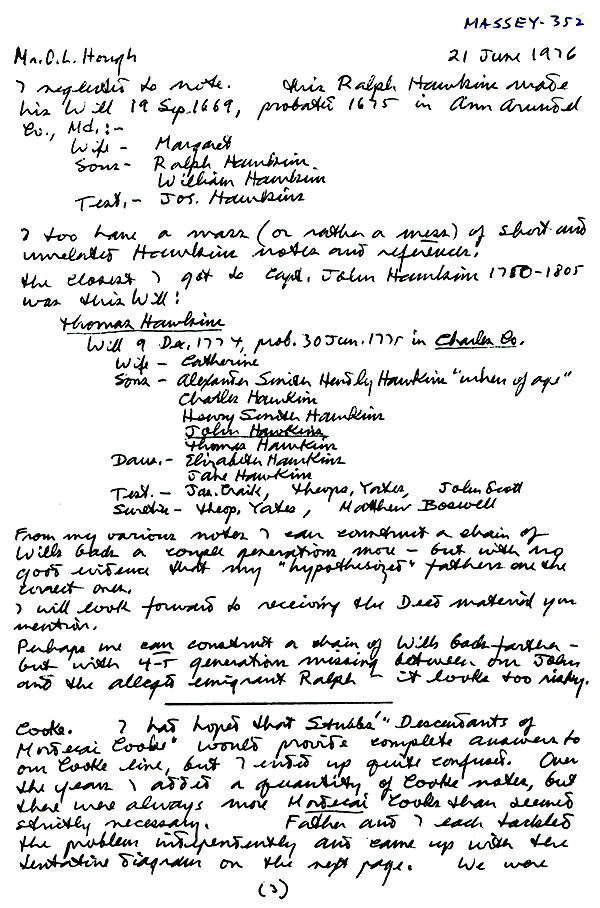 MASSEY-352
Mr. O.L. Hough 21 June 1976
I neglected to note. this Ralph Hawkins made
his Will 19 Sep. 1669, probated 1675 in Ann Arundel
Co., Md.:-
Wife - Margaret
Sons - Ralph Hawkins
William Hawkins
Test. - Jos. Hawkins
I too have a mass (or rather a mess) of short and
unrelated Hawkins notes and references.
The closest I got to Capt. John Hawkins 1750-1805
was this Will:
Thomas Hawkins
Will 9 Dec. 1774, prob. 30 Jun. 1775 in Charles Co.
Wife - Catherine
Sons - Alexander Smith Hawkins "when of age"
Charles Hawkins
Henry Smith Hawkins
John Hawkins
Thomas Hawkins
Daus. - Elizabeth Hawkins
Jane Hawkins
Test. - Jas. Craik, Theops. Yates, John Scott
Sureties - Theop. Yates, Matthew Boswell
From my various notes I can construct a chain of
Wills back a couple generations more - but with no
good evidence that my "hypothesized" fathers are the
correct ones.
I will look forward to receiving the Deed material you
mention.
Perhaps we can construct a chain of Wills back farther -
but with 4-5 generations missing between our John
and the alleged emigrant Ralph - it looks too risky.
Cooke. I had hoped that Stubbs' "Descendants of
Mordecai Cooke" would provide complete answers to
our Cooke line, but I ended up quite confused. Over
the years I added a quantity of Cooke notes, but
there were always more Mordecai Cooks than seemed
strictly necessary. Father and I each tackled
the problem independently and came up with the
tentative diagram on the next page. We were
(2)